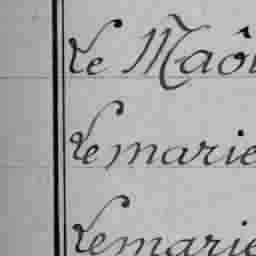 Le Maô
Lemarie
Lemarie